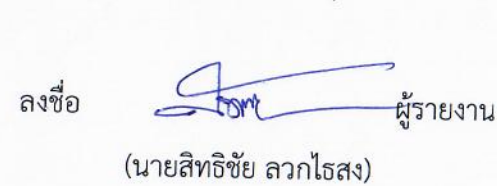 ลงชื่อ ผู้รายงาน
(นายสิทธิชัย ลวกไธสง)